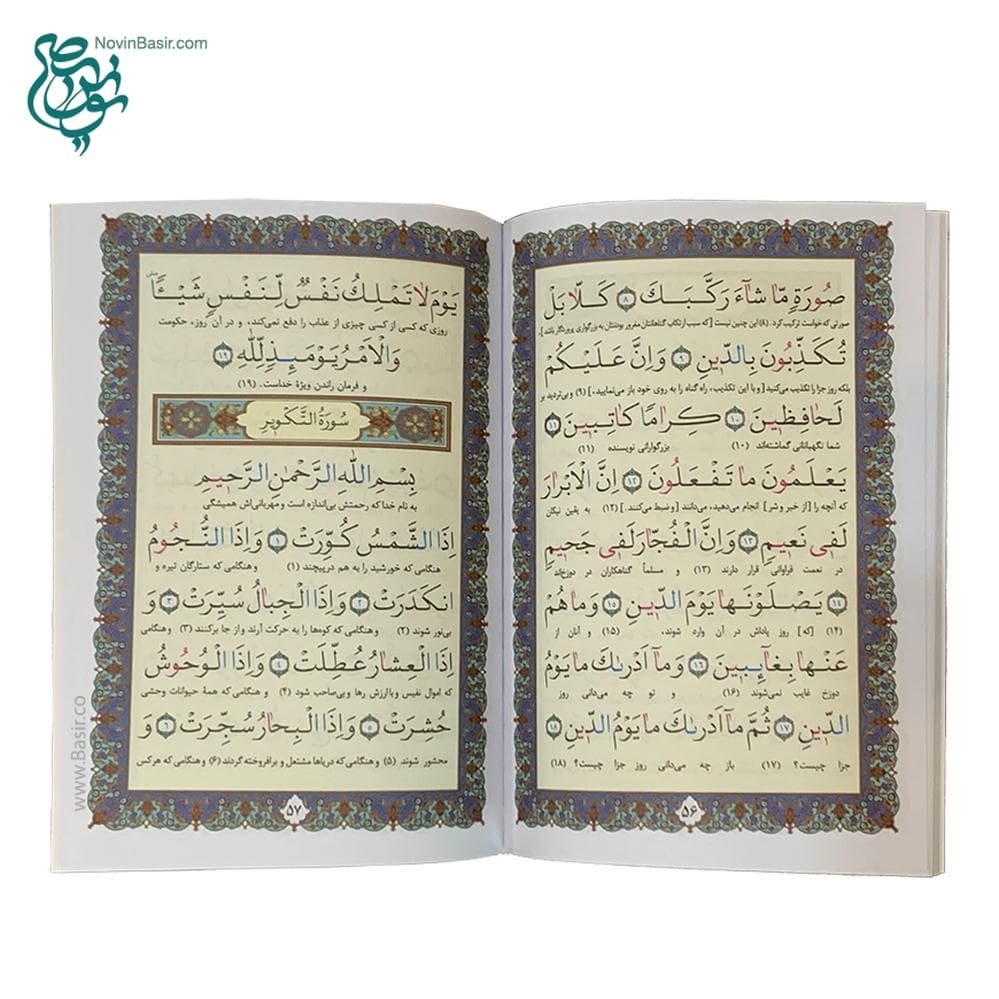 NovinBasir.com
صُورَةٍ مّا شاۤءَ رَكَّبَـكَ ﴿٨﴾ كَـلّا بَلْ
صورتی که خواست ترکیب کرد. (۸) این چنین نیست [که سبب ارتکاب گناهانتان مغرور بودنتان به بزرگواری پروردگار باشد]،
تُكَذِّبُونَ بِالدّينِ ﴿٩﴾ وَاِنَّ عَلَيْكُمْ
بلکه روز جزا را تکذیب می‌کنید [و با این تکذیب، راه گناه را به روی خود باز می‌نمایید]، (۹) و بی‌تردید بر
لَحافِظينَ ﴿١٠﴾ كِرامًا كاتِبينَ ﴿١١﴾
شما نگهبانانی گماشته‌اند (۱۰) بزرگوارانی نویسنده (۱۱)
يَعْلَمُونَ ما تَفْعَلُونَ ﴿١٢﴾ اِنَّ الْاَبْرارَ
که آنچه را [از خیر و شر] انجام می‌دهید، می‌دانند [و ضبط می‌کنند.] (۱۲) به یقین نیکان
لَفي نَعيمٍ ﴿١٣﴾ وَاِنَّ الْفُجّارَ لَفي جَحيمٍ
در نعمت فراوانی قرار دارند (۱۳) و مسلماً گناهکاران در دوزخ‌اند
﴿١٤﴾ يَصْلَوْنَها يَوْمَ الدّينِ ﴿١٥﴾ وَما هُمْ
(۱۴) [که] روز پاداش در آن وارد شوند، (۱۵) و آنان از
عَنْها بِغاۤئِبينَ ﴿١٦﴾ وَماۤ اَدْرىٰكَ ما يَوْمُ
دوزخ غایب نمی‌شوند (۱۶) و تو چه می‌دانی روز
الدّينِ ﴿١٧﴾ ثُمَّ ماۤ اَدْرىٰكَ ما يَوْمُ الدّينِ ﴿١٨﴾
جزا چیست؟ (۱۷) باز چه می‌دانی روز جزا چیست؟ (۱۸)
۵۶
يَوْمَ لا تَمْلِكُ نَفْسٌ لِنَفْسٍ شَيْـًٔا
روزی که کسی از کسی چیزی از عذاب را دفع نمی‌کند، و در آن روز، حکومت
وَالْاَمْرُ يَوْمَـئِذٍ لِلّٰهِ ﴿١٩﴾
و فرمان راندن ویژهٔ خداست. (۱۹)
سُورَةُ التَّكْويرِ
بِسْمِ اللّٰهِ الرَّحْمٰنِ الرَّحيمِ
به نام خدا که رحمتش بی‌اندازه است و مهربانی‌اش همیشگی
اِذَا الشَّمْسُ كُوِّرَتْ ﴿١﴾ وَاِذَا النُّجُومُ
هنگامی که خورشید را به هم درپیچند (۱) و هنگامی که ستارگان تیره و
انْكَدَرَتْ ﴿٢﴾ وَاِذَا الْجِبالُ سُيِّرَتْ ﴿٣﴾ وَ
بی‌نور شوند (۲) و هنگامی که کوه‌ها را به حرکت آرند و از جا برکنند (۳) و هنگامی
اِذَا الْعِشارُ عُطِّلَتْ ﴿٤﴾ وَاِذَا الْوُحُوشُ
که اموال نفیس و باارزش رها و بی‌صاحب شود (۴) و هنگامی که همهٔ حیوانات وحشی
حُشِرَتْ ﴿٥﴾ وَاِذَا الْبِحارُ سُجِّرَتْ ﴿٦﴾ وَ
محشور شوند (۵) و هنگامی که دریاها مشتعل و برافروخته گردند (۶) و هنگامی که هرکس
۵۷
www.Basir.co